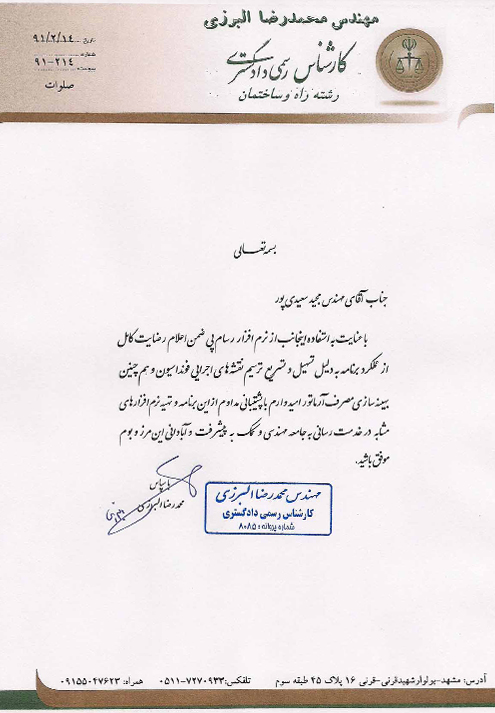 مهندس محمدرضا البرزی
کارشناس رسمی دادگستری
رشته راه و ساختمان
تاریخ: ۹۱/۲/۱۴
شماره: ۹۱-۲۱۴
پیوست:
صلوات
بسمه تعالی
جناب آقای مهندس مجید سعیدی پور
با عنایت به استفاده اینجانب از نرم افزار رسام پی ضمن اعلام رضایت کامل
از عملکرد برنامه به دلیل تسهیل و تسریع ترسیم نقشه های اجرایی فونداسیون و هم چنین
بهینه سازی مصرف آرماتور امیدوارم با پشتیبانی مداوم از این برنامه و تهیه نرم افزارهای
مشابه در خدمت رسانی به جامعه مهندسی و کمک به پیشرفت و آبادانی این مرز و بوم
موفق باشید.
با سپاس
محمدرضا البرزی
مهندس محمدرضا البرزی
کارشناس رسمی دادگستری
شماره پروانه: ۸۰۸۵
آدرس: مشهد-بولوارشهیدقرنی-قرنی ۱۶ پلاک ۴۵ طبقه سوم تلفکس: ۷۲۷۰۹۳۳-۰۵۱۱ همراه: ۰۹۱۵۵۰۴۷۶۲۳